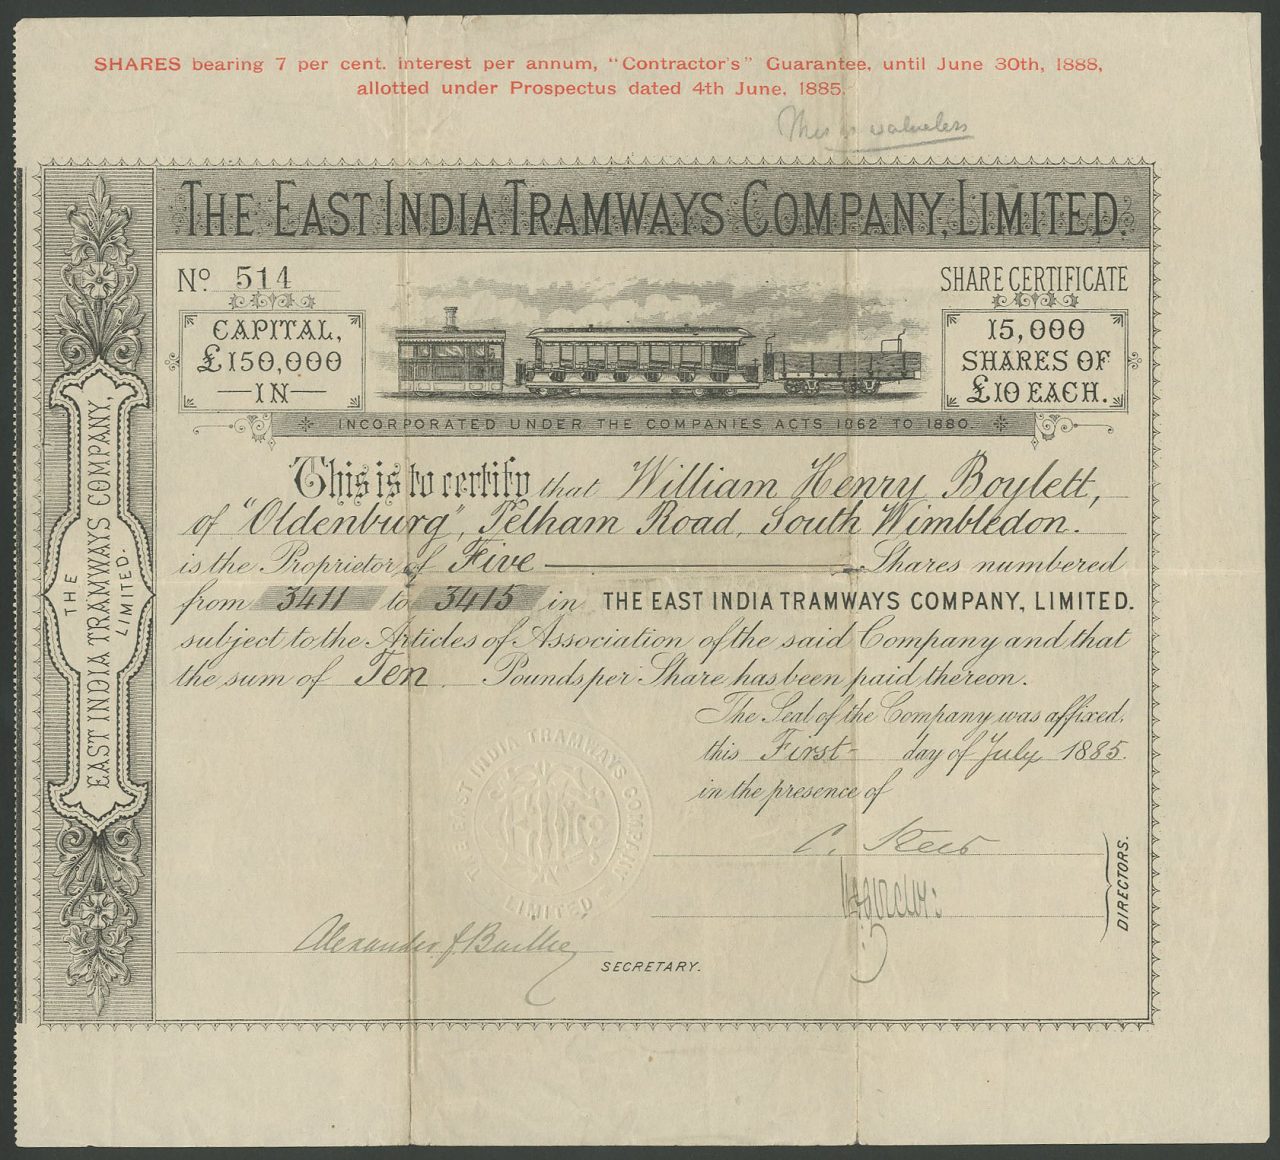 SHARES bearing 7 per cent. interest per annum, "Contractor's" Guarantee, until June 30th, 1888,
allotted under Prospectus dated 4th June, 1885.
This is valueless
THE EAST INDIA TRAMWAYS COMPANY, LIMITED.
No. 514
SHARE CERTIFICATE
CAPITAL,
£150,000
IN
15,000
SHARES OF
£10 EACH.
INCORPORATED UNDER THE COMPANIES ACTS 1862 TO 1880.
This is to certify that William Henry Boylett,
of "Oldenburg", Pelham Road, South Wimbledon.
is the Proprietor of Five Shares numbered
from 3411 to 3415 in THE EAST INDIA TRAMWAYS COMPANY, LIMITED.
subject to the Articles of Association of the said Company and that
the sum of Ten Pounds per Share has been paid thereon.
The Seal of the Company was affixed.
this First day of July 1885.
in the presence of
DIRECTORS.
Alexander J. Baillie
SECRETARY.
THE EAST INDIA TRAMWAYS COMPANY
LIMITED
THE
EAST INDIA TRAMWAYS COMPANY,
LIMITED.